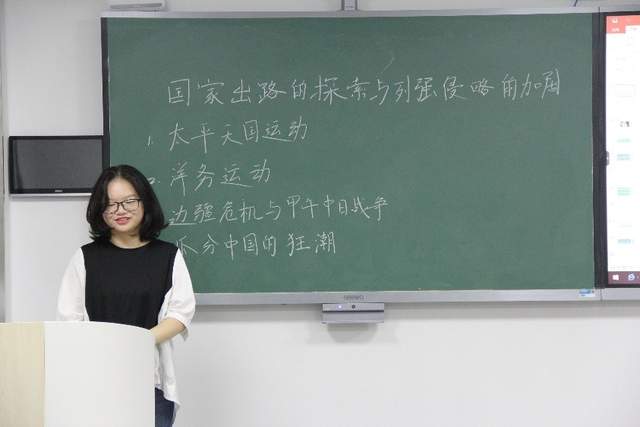 国家出路的探索与列强侵略的加剧
1. 太平天国运动
2. 洋务运动
边疆危机与甲午中日战争
瓜分中国的狂潮